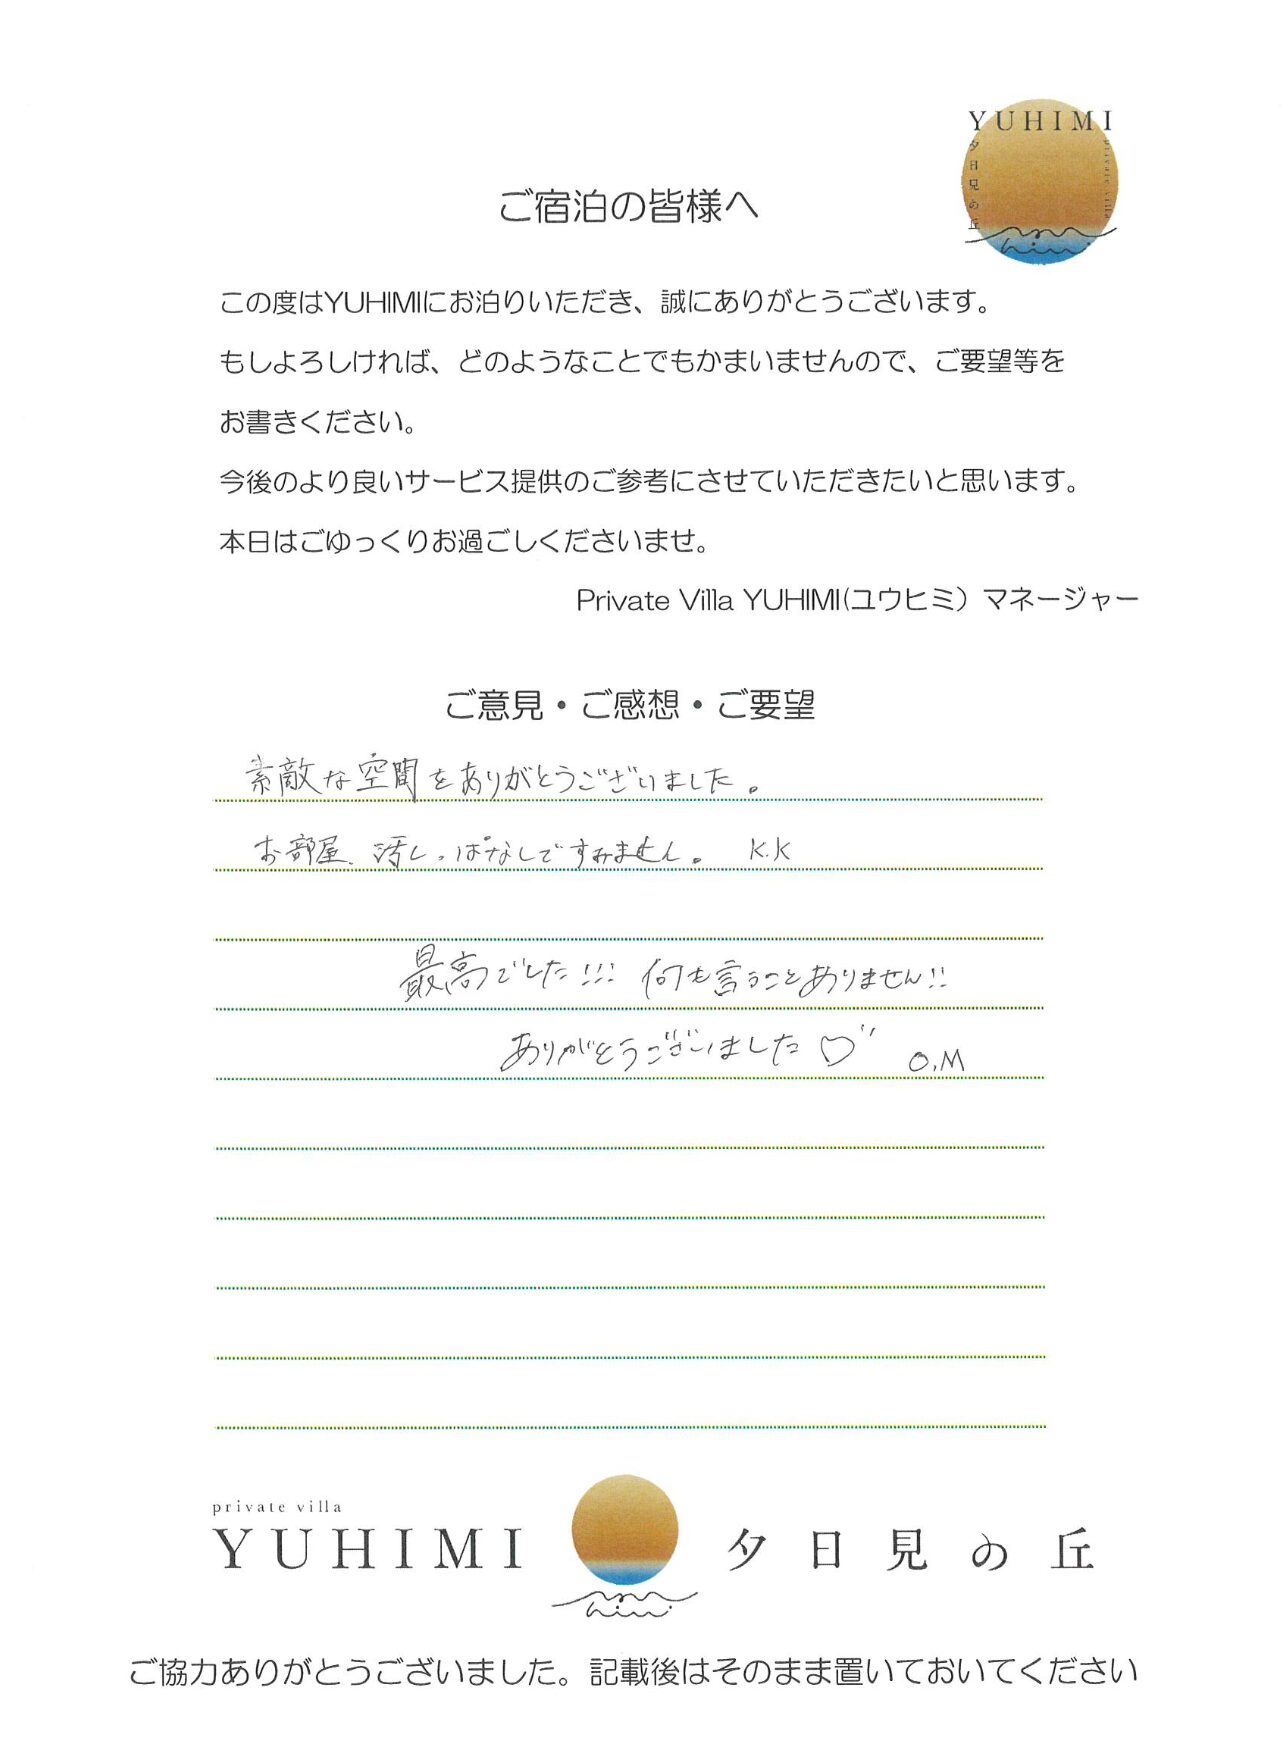 YUHIMI
夕日見の丘
private villa
ご宿泊の皆様へ
この度はYUHIMIにお泊りいただき、誠にありがとうございます。
もしよろしければ、どのようなことでもかまいませんので、ご要望等を
お書きください。
今後のより良いサービス提供のご参考にさせていただきたいと思います。
本日はごゆっくりお過ごしくださいませ。
Private Villa YUHIMI(ユウヒミ）マネージャー
ご意見・ご感想・ご要望
素敵な空間をありがとうございました。
お部屋、汚しっぱなしですみません。 K.K
最高でした!!! 何も言うことありません!!
ありがとうございました♡〃 O.M
private villa
YUHIMI 夕日見の丘
ご協力ありがとうございました。記載後はそのまま置いておいてください